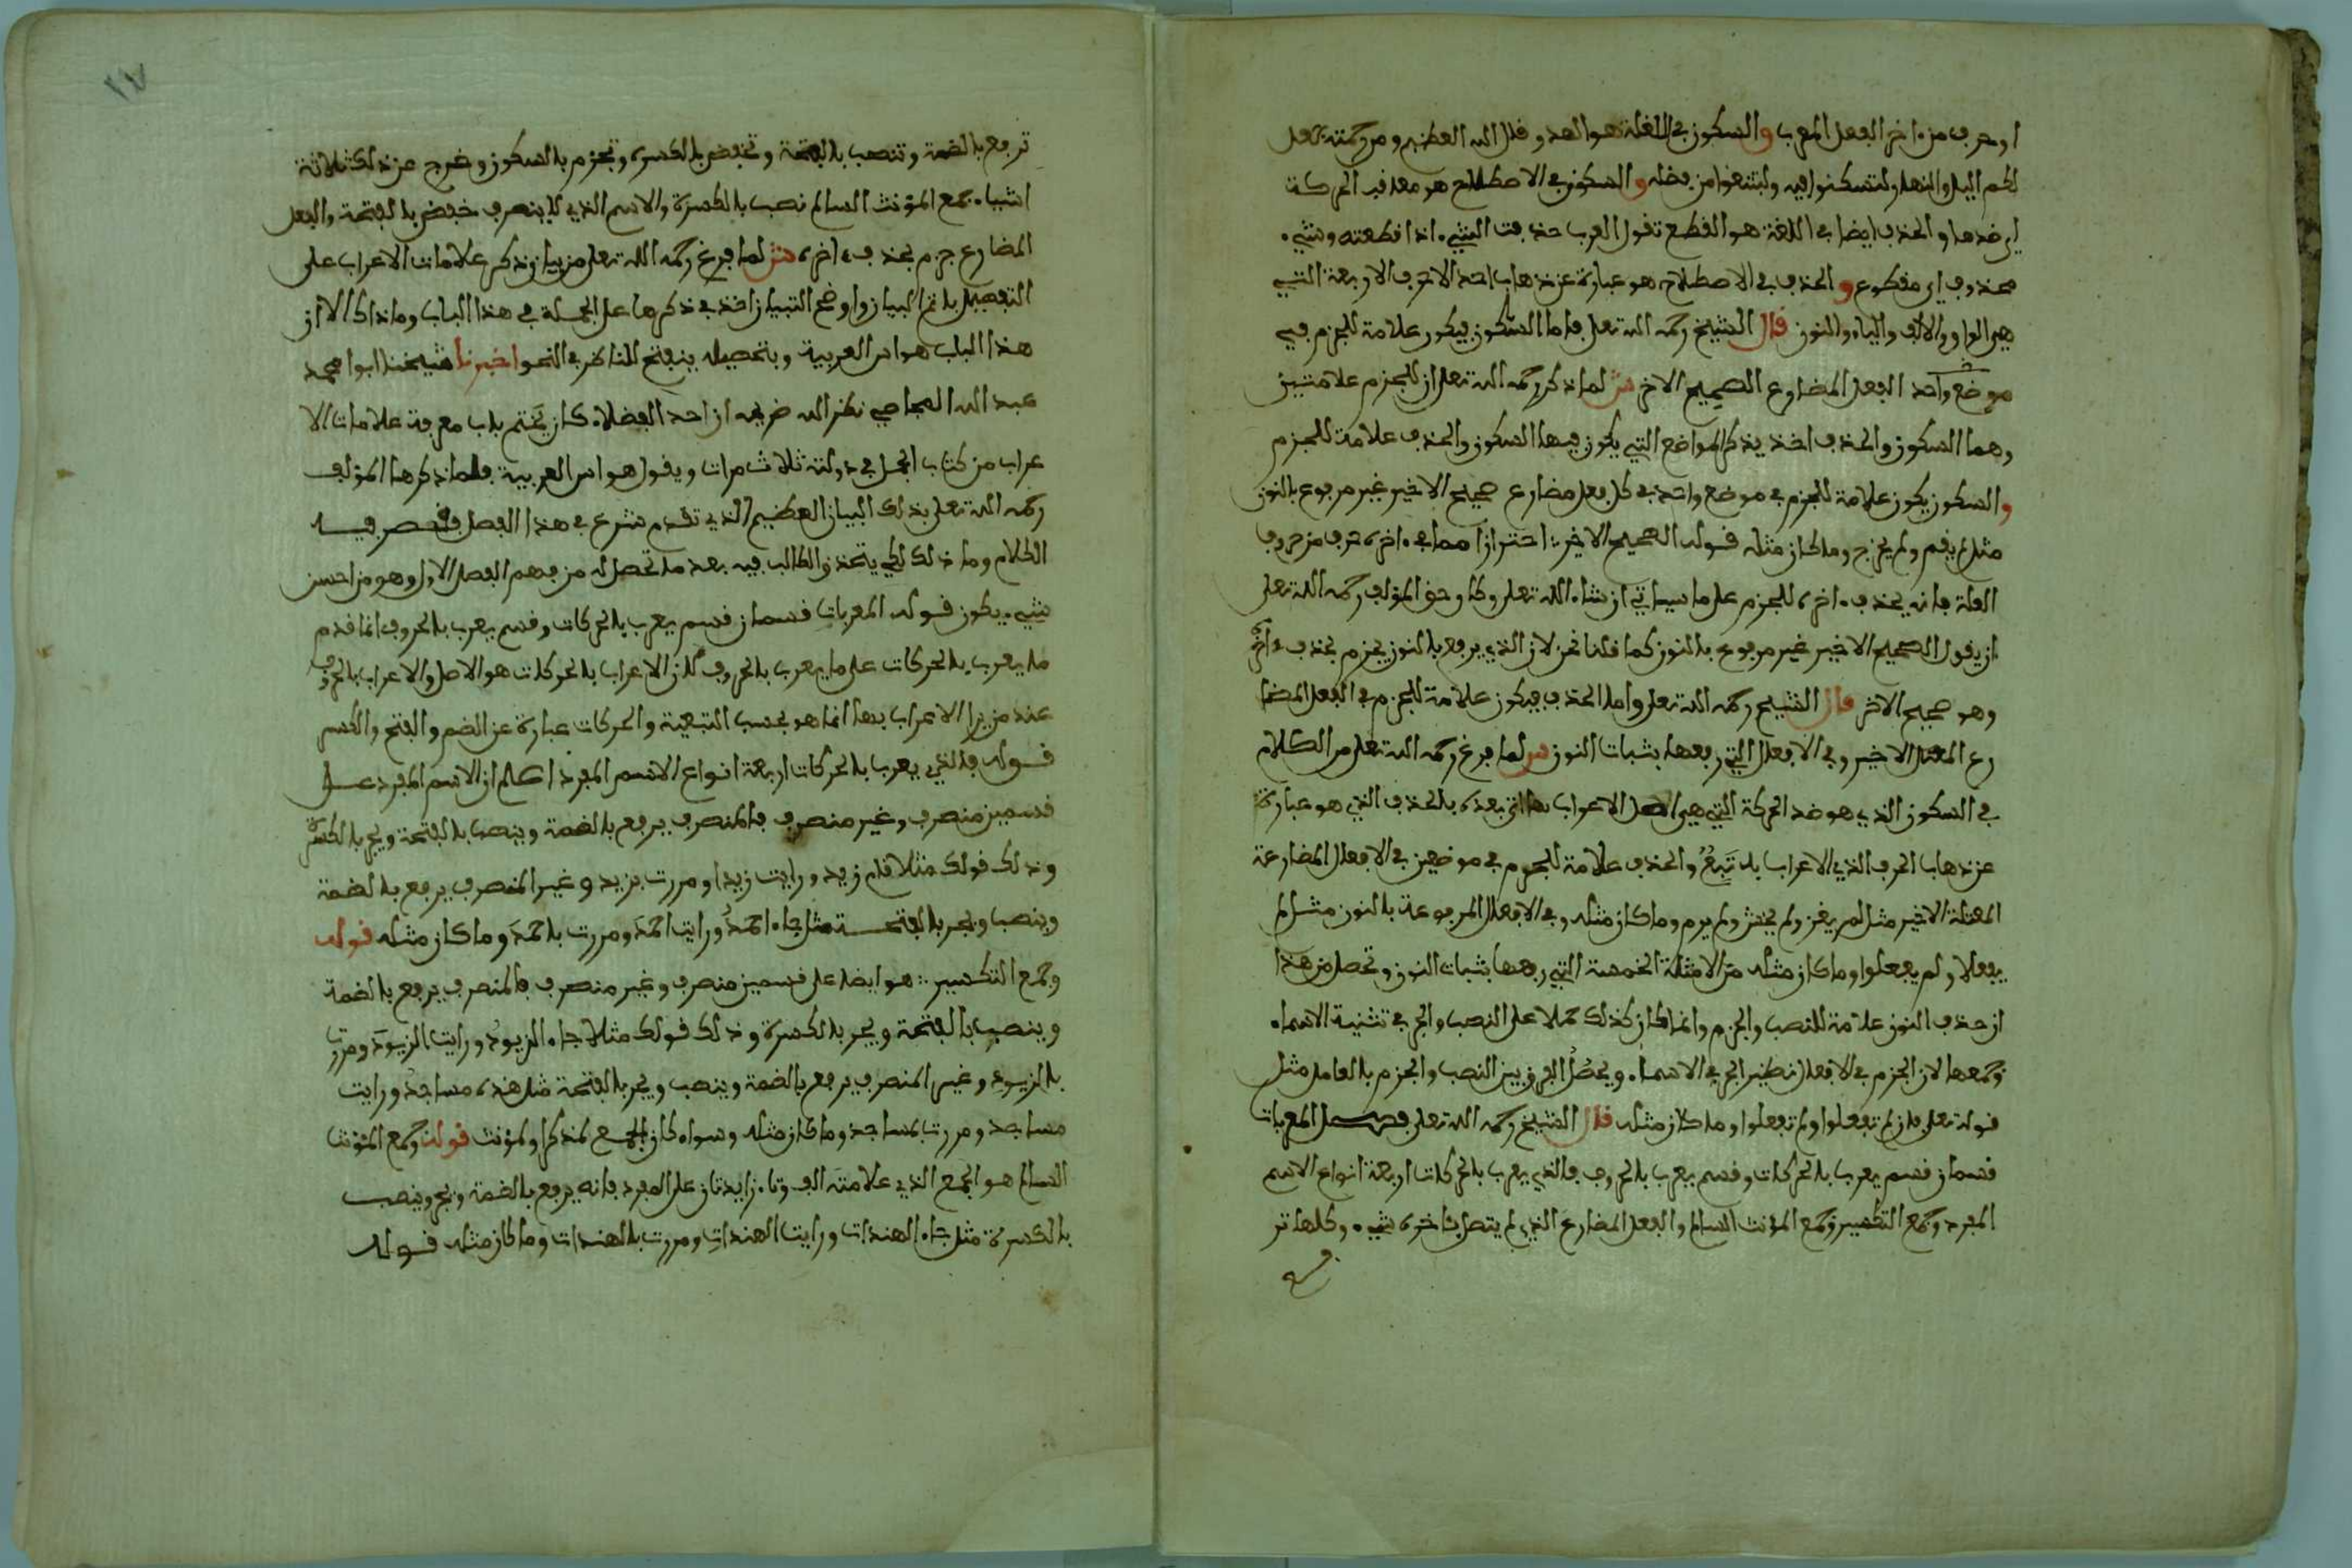 او حرف من ءاخر الفعل المعرب والسكون في اللغة هو الهدو قال الله العظيم ومن رحمته جعل
لكم اليل والنهار لتسكنوا فيه ولتبتغوا من فضله والسكون في الاصطلاح هو معاقب الحركة
اي ضدها والحذف ايضا في اللغة هو القطع تقول العرب حذفت الشيء اذا قطعته وشيء
محذوف اي مقطوع والحذف في الاصطلاح هو عبارة عن ذهاب احد الاحرف الاربعة التي
هي الواو والالف والياء والنون قال الشيخ رحمه الله تعلى فاما السكون فيكون علامة للجزم في
موضع واحد الفعل المضارع الصحيح الاخر ش لما ذكر رحمه الله تعلى ان للجزم علامتين
وهما السكون والحذف اخذ يذكر المواضع التي يكون فيها السكون والحذف علامة للجزم
والسكون يكون علامة للجزم في موضع واحد في كل فعل مضارع صحيح الاخير غير مرفوع بالنون
مثل لم يقم ولم يخرج وما كان مثله قوله الصحيح الاخير احترازا مما في ءاخره حرف من حروف
العلة فانه يحذف ءاخره للجزم على ما سياتي ان شاء الله تعلى وكان حق المؤلف رحمه الله تعلى
ان يقول الصحيح الاخير غير مرفوع بالنون كما قلنا نحن لان الذي يرفع بالنون يجزم بحذف ءاخره
وهو صحيح الاخر قال الشيخ رحمه الله تعلى واما الحذف فيكون علامة للجزم في الفعل المضا
رع المعتل الاخير وفي الافعال التي رفعها بثبات النون ش لما فرغ رحمه الله تعلى من الكلام
في السكون الذي هو ضد الحركة التي هي اصل الاعراب اتى بعده بالحذف الذي هو عبارة
عن ذهاب الحرف الذي الاعراب به تبع والحذف علامة للجزم في موضعين في الافعال المضارعة
المعتلة الاخير مثل لم يغز ولم يخش ولم يرم وما كان مثله وفي الافعال المرفوعة بالنون مثل لم
يفعلا ولم يفعلوا وما كان مثله من الامثلة الخمسة التي رفعها بثبات النون وتحصل من هذا
ان حذف النون علامة للنصب والجزم وانما كان كذلك حملا على النصب والجر في تثنية الاسماء
وجمعها لان الجزم في الافعال نظير الجر في الاسماء ويحصل الفرق بين النصب والجزم بالعامل مثل
قوله تعلى فان لم تفعلوا ولم تفعلوا وما كان مثله قال الشيخ رحمه الله تعلى فصل المعربات
قسمان قسم يعرب بالحركات وقسم يعرب بالحروف فالذي يعرب بالحركات اربعة انواع الاسم
المفرد وجمع التكسير وجمع المؤنث السالم والفعل المضارع الذي لم يتصل بئاخره شيء وكلها تر
ترفع بالضمة وتنصب بالفتحة وتخفض بالكسرة وتجزم بالسكون وخرج عن ذلك ثلاثة
اشياء جمع المؤنث السالم نصب بالكسرة والاسم الذي لا ينصرف خفض بالفتحة والفعل
المضارع جزم بحذف ءاخره ش لما فرغ رحمه الله تعلى من بيان ذكر علامات الاعراب على
التفصيل باتم البيان واوضح التبيان اخذ في ذكرها على الجملة في هذا الباب وما ذاك الا ان
هذا الباب هو اس العربية وبتحصيله ينفتح للناظر في النحو اخبرنا شيخنا ابوا محمد
عبد الله المجاصي نظر الله ضريحه ان احد الفضلاء كان يختم باب معرفة علامات الا
عراب من كتاب الجمل في دولته ثلاث مرات ويقول هو اس العربية فلما ذكرها المؤلف
رحمه الله تعلى بذلك البيان العظيم الذي تقدم شرع في هذا الفصل فحصر فيه
الكلام وما ذلك لكي يتحذق الطالب فيه بعد ما تحصل له من فهم الفصل الاول وهو من احسن
شيء يكون قوله المعربات قسمان قسم يعرب بالحركات وقسم يعرب بالحروف انما قدم
ما يعرب بالحركات على ما يعرب بالحروف لان الاعراب بالحركات هو الاصل والاعراب بالحروف
عند من يرا الاعراب بها انما هو بحسب التبعية والحركات عبارة عن الضم والفتح والكسر
قوله فالذي يعرب بالحركات اربعة انواع الاسم المفرد اعلم ان الاسم المفرد على
قسمين منصرف وغير منصرف فالمنصرف يرفع بالضمة وينصب بالفتحة ويجر بالكسرة
وذلك قولك مثلا قام زيد ورايت زيدا ومررت بزيد وغير المنصرف يرفع بالضمة
وينصب ويجر بالفتحة مثل جاء احمدُ ورايت احمدَ ومررت باحمدَ وما كان مثله قوله
وجمع التكسير هو ايضا على قسمين منصرف وغير منصرف فالمنصرف يرفع بالضمة
وينصب بالفتحة ويجر بالكسرة وذلك قولك مثلا جاء الزيودُ ورايت الزيودَ ومررت
بالزيودِ وغير المنصرف يرفع بالضمة وينصب ويجر بالفتحة مثل هذه مساجدُ ورايت
مساجد ومررت بمساجد وما كان مثله وسواء كان الجمع لمذكر او لمؤنث قوله وجمع المؤنث
السالم هو الجمع الذي علامته الف وتاء زايدتان على المفرد فانه يرفع بالضمة ويجر وينصب
بالكسرة مثل جاء الهندات ورايت الهنداتِ ومررت بالهندات وما كان مثله قوله